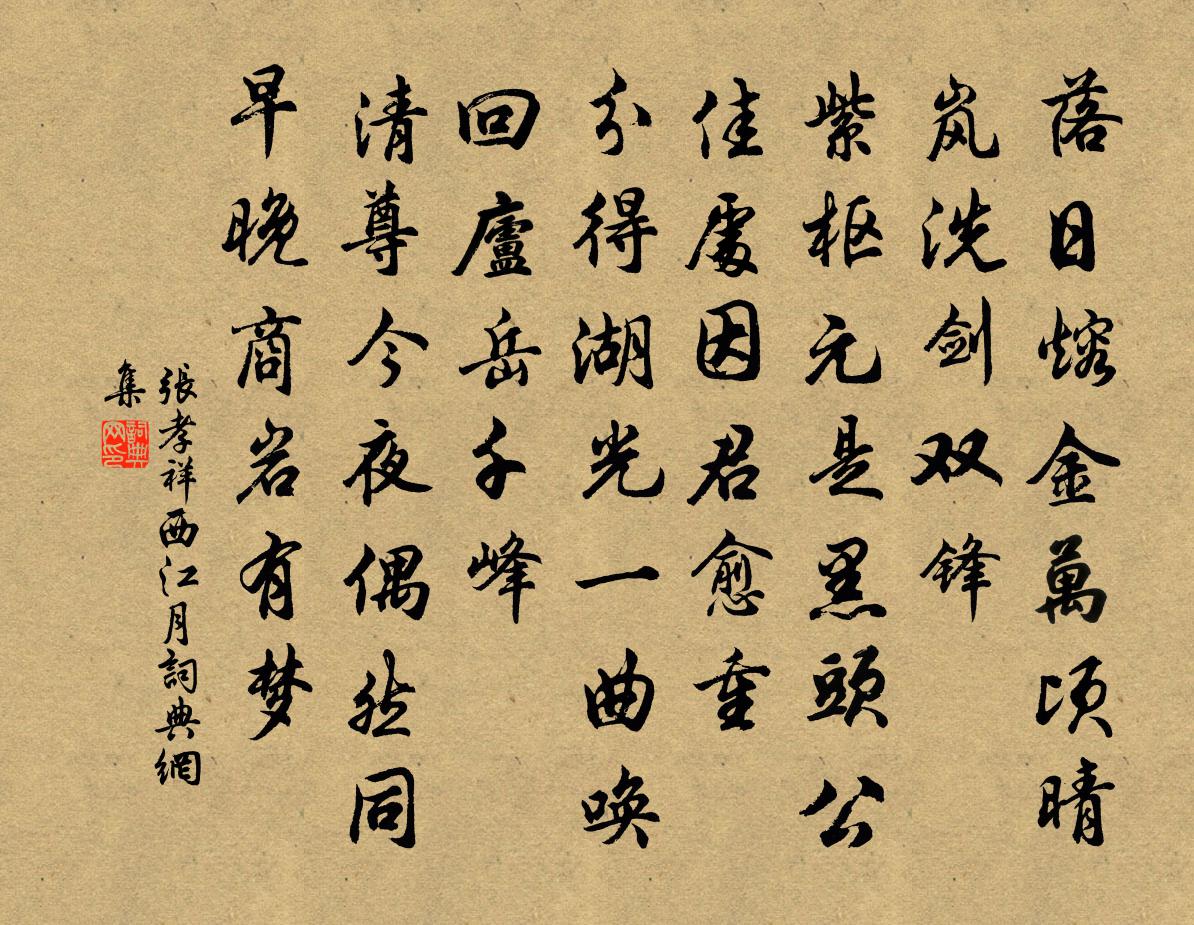 落日熔金萬頃晴
岚洗剑双锋
紫枢元是黑頭公
佳處因君愈重
分得湖光一曲唤
回廬岳千峰
清尊今夜偶然同
早晚商岩有梦
張孝祥西江月詞典網
集
詞典网印